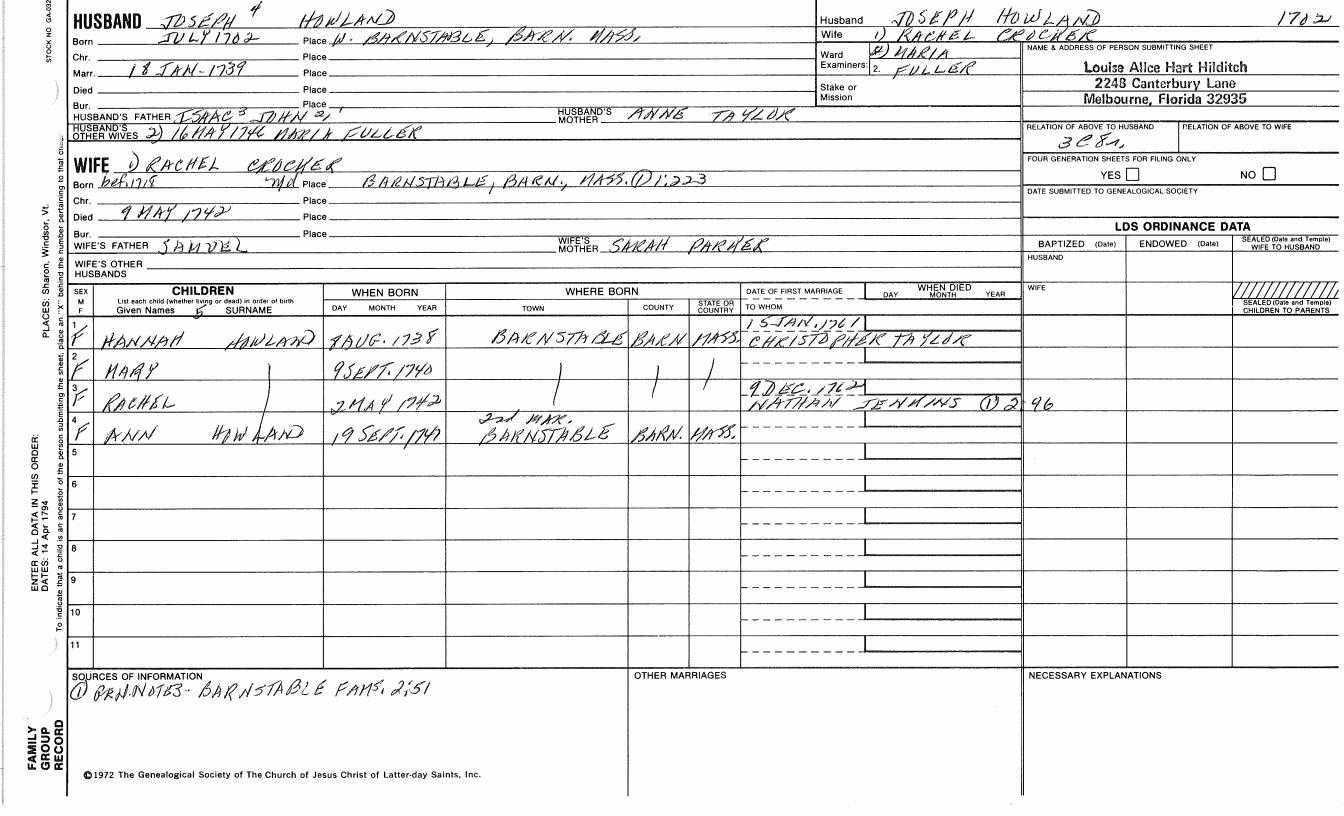 HUSBAND JOSEPH 4 HOWLAND
Born JULY 1702 Place W. BARNSTABLE, BARN. MASS.
Chr. Place
Marr. 18 JAN-1739 Place
Died Place
Bur. Place
HUSBAND'S FATHER ISAAC 3 JOHN 2, 1 HUSBAND'S MOTHER ANNE TAYLOR
HUSBAND'S OTHER WIVES 2) 16 MAY 1746 MARIA FULLER
WIFE 1) RACHEL CROCHER
Born bef. 1718 Place BARNSTABLE, BARN., MASS. ① 1:223
Chr. Place
Died 9 MAY 1742 Place
Bur. Place
WIFE'S FATHER SAMUEL WIFE'S MOTHER SARAH PARHER
WIFE'S OTHER HUSBANDS
Husband JOSEPH HOWLAND 1702
Wife 1) RACHEL CROCHER
Ward 2) MARIA
Examiners: 2. FULLER
Stake or Mission
NAME & ADDRESS OF PERSON SUBMITTING SHEET
Louise Alice Hart Hilditch
2248 Canterbury Lane
Melbourne, Florida 32935
RELATION OF ABOVE TO HUSBAND RELATION OF ABOVE TO WIFE
3C8r.
FOUR GENERATION SHEETS FOR FILING ONLY
YES NO
DATE SUBMITTED TO GENEALOGICAL SOCIETY
LDS ORDINANCE DATA
BAPTIZED (Date) ENDOWED (Date) SEALED (Date and Temple) WIFE TO HUSBAND
HUSBAND
WIFE
SEALED (Date and Temple) CHILDREN TO PARENTS
SEX M F CHILDREN WHEN BORN WHERE BORN DATE OF FIRST MARRIAGE WHEN DIED
List each child (whether living or dead) in order of birth
Given Names 5 SURNAME DAY MONTH YEAR TOWN COUNTY STATE OR COUNTRY TO WHOM DAY MONTH YEAR
15 JAN. 1761
1 F HANNAH HOWLAND 8 AUG. 1738 BARNSTABLE BARN MASS. CHRISTOPHER TAYLOR
2 F MARY 9 SEPT. 1740
9 DEC. 1762
3 F RACHEL 2 MAY 1742 NATHAN JENKINS ① 2 96
2nd MAR.
4 F ANN HOWLAND 19 SEPT. 1747 BARNSTABLE BARN. MASS.
5
6
7
8
9
10
11
SOURCES OF INFORMATION OTHER MARRIAGES NECESSARY EXPLANATIONS
① NOTES- BARNSTABLE FAMS. 2:51
©1972 The Genealogical Society of The Church of Jesus Christ of Latter-day Saints, Inc.
STOCK NO GA-032
PLACES: Sharon, Windsor, Vt.
ENTER ALL DATA IN THIS ORDER:
DATES: 14 Apr 1794
To indicate that a child is an ancestor of the person submitting the sheet, place an "X" behind the number pertaining to that
FAMILY
GROUP
RECORD